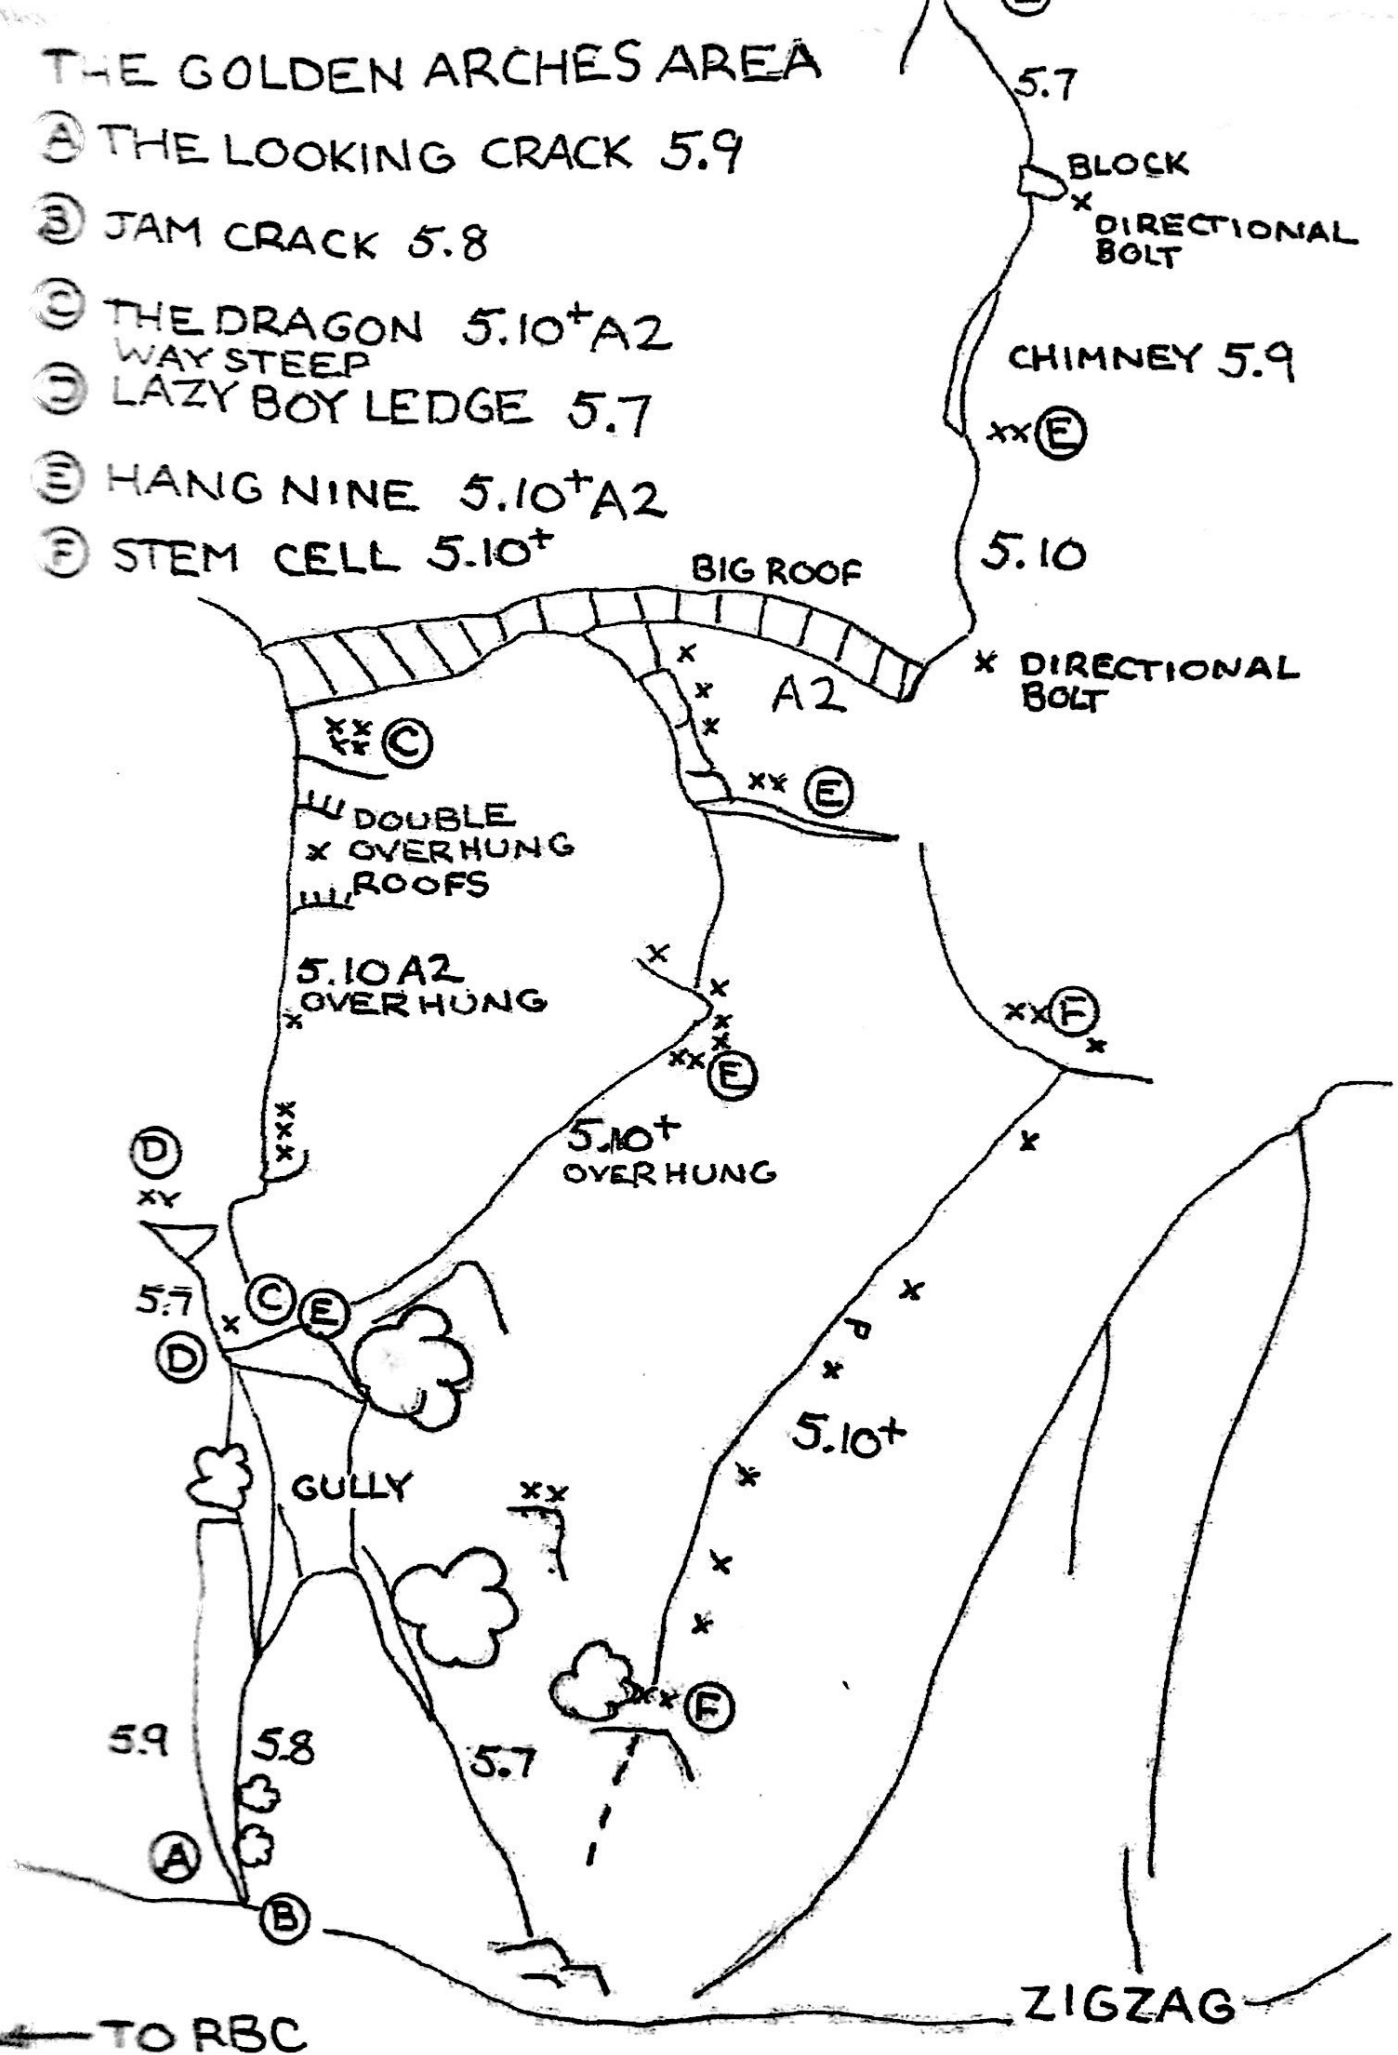 THE GOLDEN ARCHES AREA
A THE LOOKING CRACK 5.9
B JAM CRACK 5.8
C THE DRAGON 5.10+A2
WAY STEEP
D LAZY BOY LEDGE 5.7
E HANG NINE 5.10+A2
F STEM CELL 5.10+
5.7
BLOCK
x
DIRECTIONAL
BOLT
CHIMNEY 5.9
xx E
5.10
BIG ROOF
x DIRECTIONAL
BOLT
x
x
x
A2
xx
xx C
xx E
DOUBLE
x OVERHUNG
ROOFS
5.10 A2
OVERHUNG
x
x
x
x
x
xx E
xx F
x
x
x
x
5.10+
OVERHUNG
x
D
xx
5.7
x
C E
D
x
P
x
5.10+
x
GULLY
xx
x
x
xx F
5.9
5.8
5.7
A
B
ZIGZAG
TO RBC